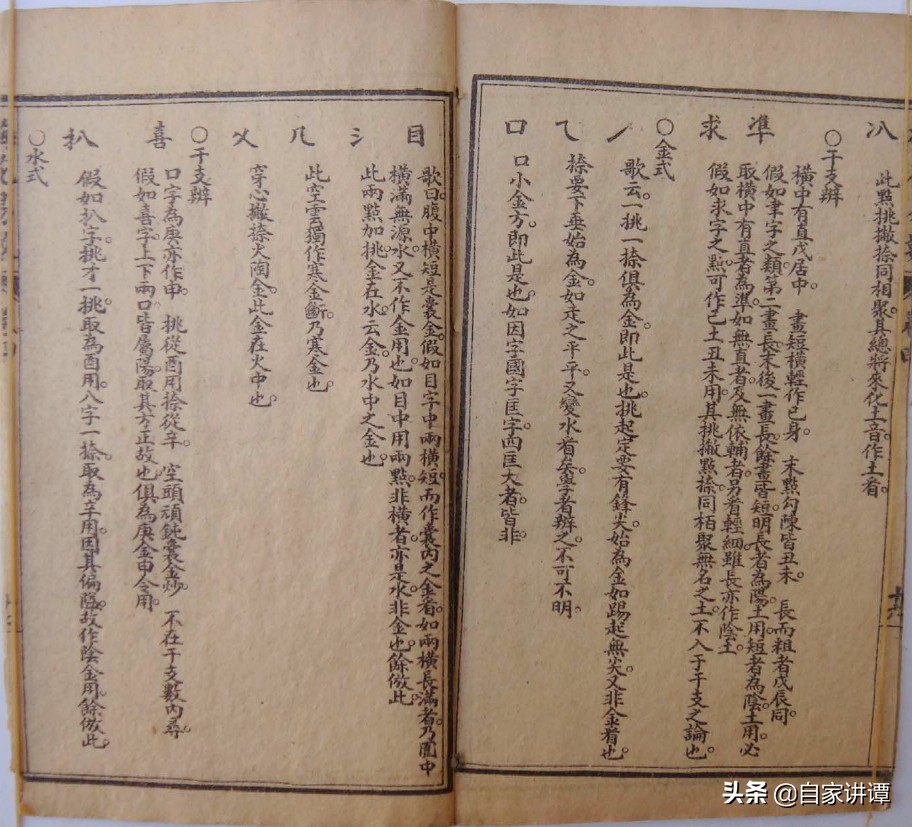 八
此點挑撇捺同相聚其總將來化土音作土看
○干支辨
橫中有直戊居中 畫短橫輕作己身 末點勾陳皆丑未 長而粗者戊辰同
假如聿字之類第二畫長末後一畫長餘畫皆短明長者為陽土用短者為陰土用必
準
取橫中有直者為準如無直者及無依輔者另看輕細雖長亦作陰土
求
假如求字之點可作己土丑未用其挑撇點捺同相聚無名之土不入于干支之論也
○金式
丿
歌云一挑一捺俱為金即此是也挑起定要有鋒尖始為金如踢起無尖又非金看也
乀
捺要下垂始為金如走之平平又變水看矣學者辨之不可不明
口
口小金方即此是也如因字國字匡字西匡大者皆非
目
歌曰腹中橫短是囊金假如目字中兩橫短而作囊內之金看如兩橫長滿者乃閫中
橫滿無源水又不作金用也如目中用兩點非橫者亦是水非金也餘倣此
冫
此兩點加挑金在水云金乃水中之金也
几
此空雲獨作寒金斷乃寒金也
乂
穿心撇捺火陶金此金在火中也
○干支辨
口字為庚亦作申 挑從酉用捺從辛 空頭頑鈍囊金妙 不在干支數內尋
喜
假如喜字上下兩口皆屬陽取其方正故也俱為庚金申令用
扒
假如扒字挑才一挑取為酉用八字一捺取為辛用因其偏隘故作陰金用餘倣此
○水式
头条 @自家讲谭